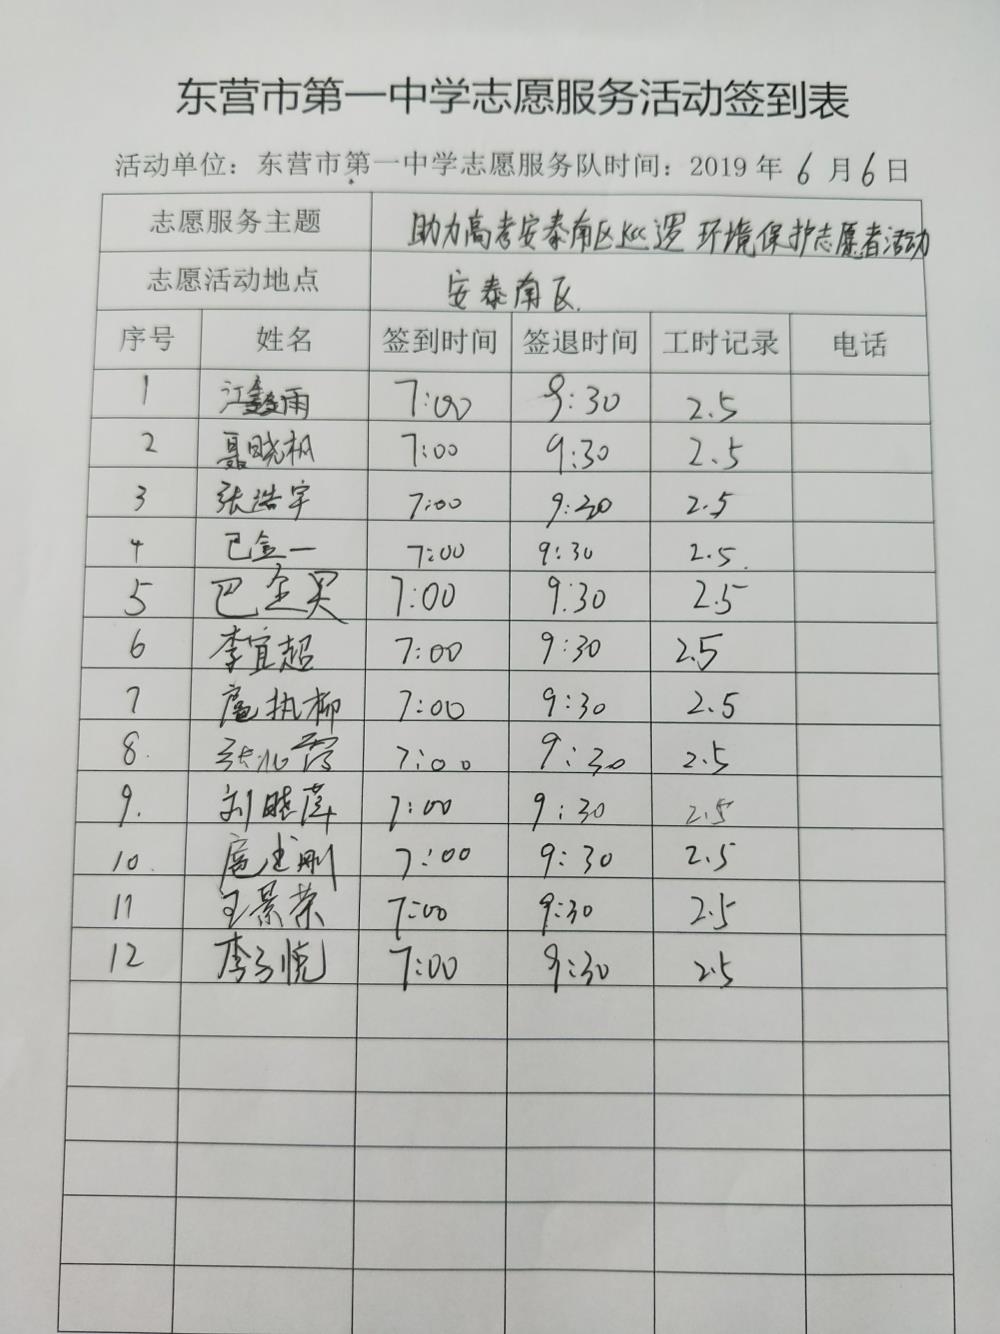 东营市第一中学志愿服务活动签到表
活动单位：东营市第一中学志愿服务队时间：2019 年 6 月 6 日
志愿服务主题 助力高考安泰南区巡逻 环境保护志愿者活动
志愿活动地点 安泰南区.
序号 姓名 签到时间 签退时间 工时记录 电话
1 江鑫雨 7:00 9:30 2.5
2 聂晓枫 7:00 9:30 2.5
3 张浩宇 7:00 9:30 2.5
4 巴金一 7:00 9:30 2.5
5 巴 7:00 9:30 2.5
6 李宜超 7:00 9:30 2.5
7 扈执柳 7:00 9:30 2.5
8. 张 霞 7:00 9:30 2.5
9. 刘晓萍 7:00 9:30 2.5
10. 扈 刚 7:00 9:30 2.5
11 王景荣 7:00 9:30 2.5
12 李子悦 7:00 9:30 2.5